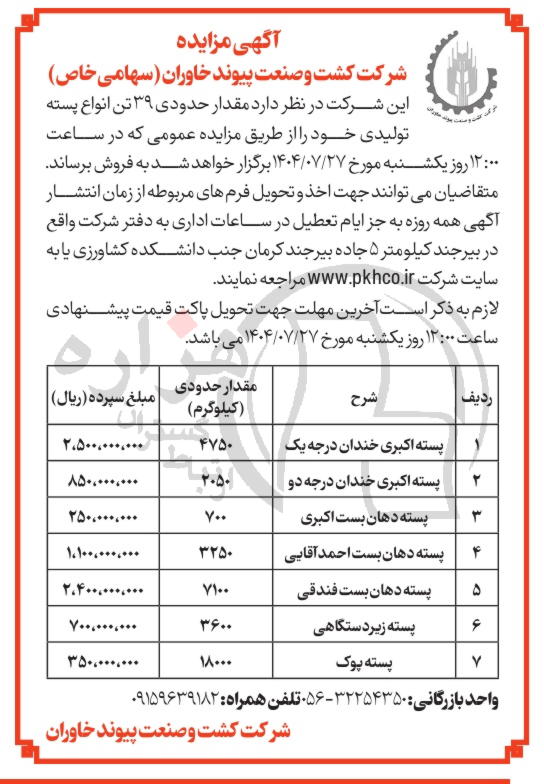 آگهی مزایده
شرکت کشت و صنعت پیوند خاوران (سهامی خاص)
شرکت کشت و صنعت پیوند خاوران
این شرکت در نظر دارد مقدار حدودی ۳۹ تن انواع پسته
تولیدی خود را از طریق مزایده عمومی که در ساعت
۱۲:۰۰ روز یکشنبه مورخ ۱۴۰۴/۰۷/۲۷ برگزار خواهد شد به فروش برساند.
متقاضیان می توانند جهت اخذ و تحویل فرم های مربوطه از زمان انتشار
آگهی همه روزه به جز ایام تعطیل در ساعات اداری به دفتر شرکت واقع
در بیرجند کیلومتر ۵ جاده بیرجند کرمان جنب دانشکده کشاورزی یا به
سایت شرکت www.pkhco.ir مراجعه نمایند.
لازم به ذکر است آخرین مهلت جهت تحویل پاکت قیمت پیشنهادی
ساعت ۱۲:۰۰ روز یکشنبه مورخ ۱۴۰۴/۰۷/۲۷ می باشد.
ردیف شرح مقدار حدودی (کیلوگرم) مبلغ سپرده (ریال)
۱ پسته اکبری خندان درجه یک ۴۷۵۰ ۲,۵۰۰,۰۰۰,۰۰۰
۲ پسته اکبری خندان درجه دو ۲۰۵۰ ۸۵۰,۰۰۰,۰۰۰
۳ پسته دهان بست اکبری ۷۰۰ ۲۵۰,۰۰۰,۰۰۰
۴ پسته دهان بست احمدآقایی ۳۲۵۰ ۱,۱۰۰,۰۰۰,۰۰۰
۵ پسته دهان بست فندقی ۷۱۰۰ ۲,۴۰۰,۰۰۰,۰۰۰
۶ پسته زیردستگاهی ۳۶۰۰ ۷۰۰,۰۰۰,۰۰۰
۷ پسته پوک ۱۸۰۰۰ ۳۵۰,۰۰۰,۰۰۰
هزاره
گستران
ارتباط
واحد بازرگانی: ۳۲۲۵۴۳۵۰-۰۵۶ تلفن همراه: ۰۹۱۵۹۶۳۹۱۸۲
شرکت کشت و صنعت پیوند خاوران